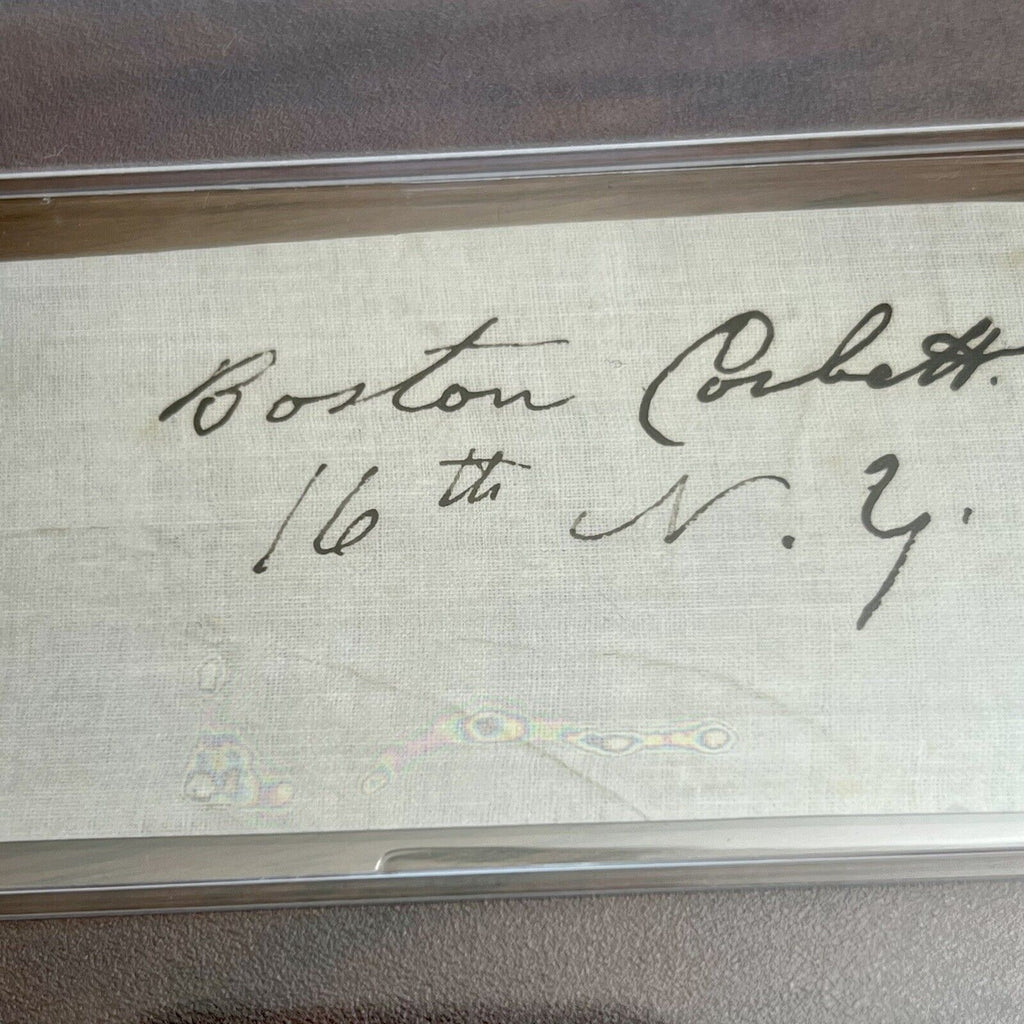 Boston Corbett.
16th N. Y.